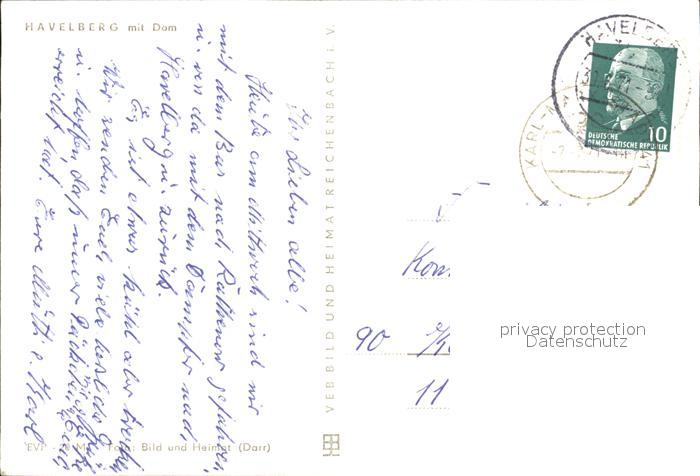 HAVELBERG mit Dom
Ihr Lieben alle!
Heute am Mittwoch sind wir
mit dem Bus nach Rathenow gefahren
u. von da mit dem Dampfer nach
Havelberg zurück.
Es ist etwas kühl aber
Wir senden Euch viele herzliche
u. hoffen, daß unser Päckchen Euch
erreicht hat. Eure Mutti u. Karl
EVP - M Foto: Bild und Heimat (Darr)
VEB BILD UND HEIMAT REICHENBACH i. V.
HAVELBERG
KARL-M
41
DEUTSCHE
DEMOKRATISCHE REPUBLIK
10
90
11
privacy protection
Datenschutz